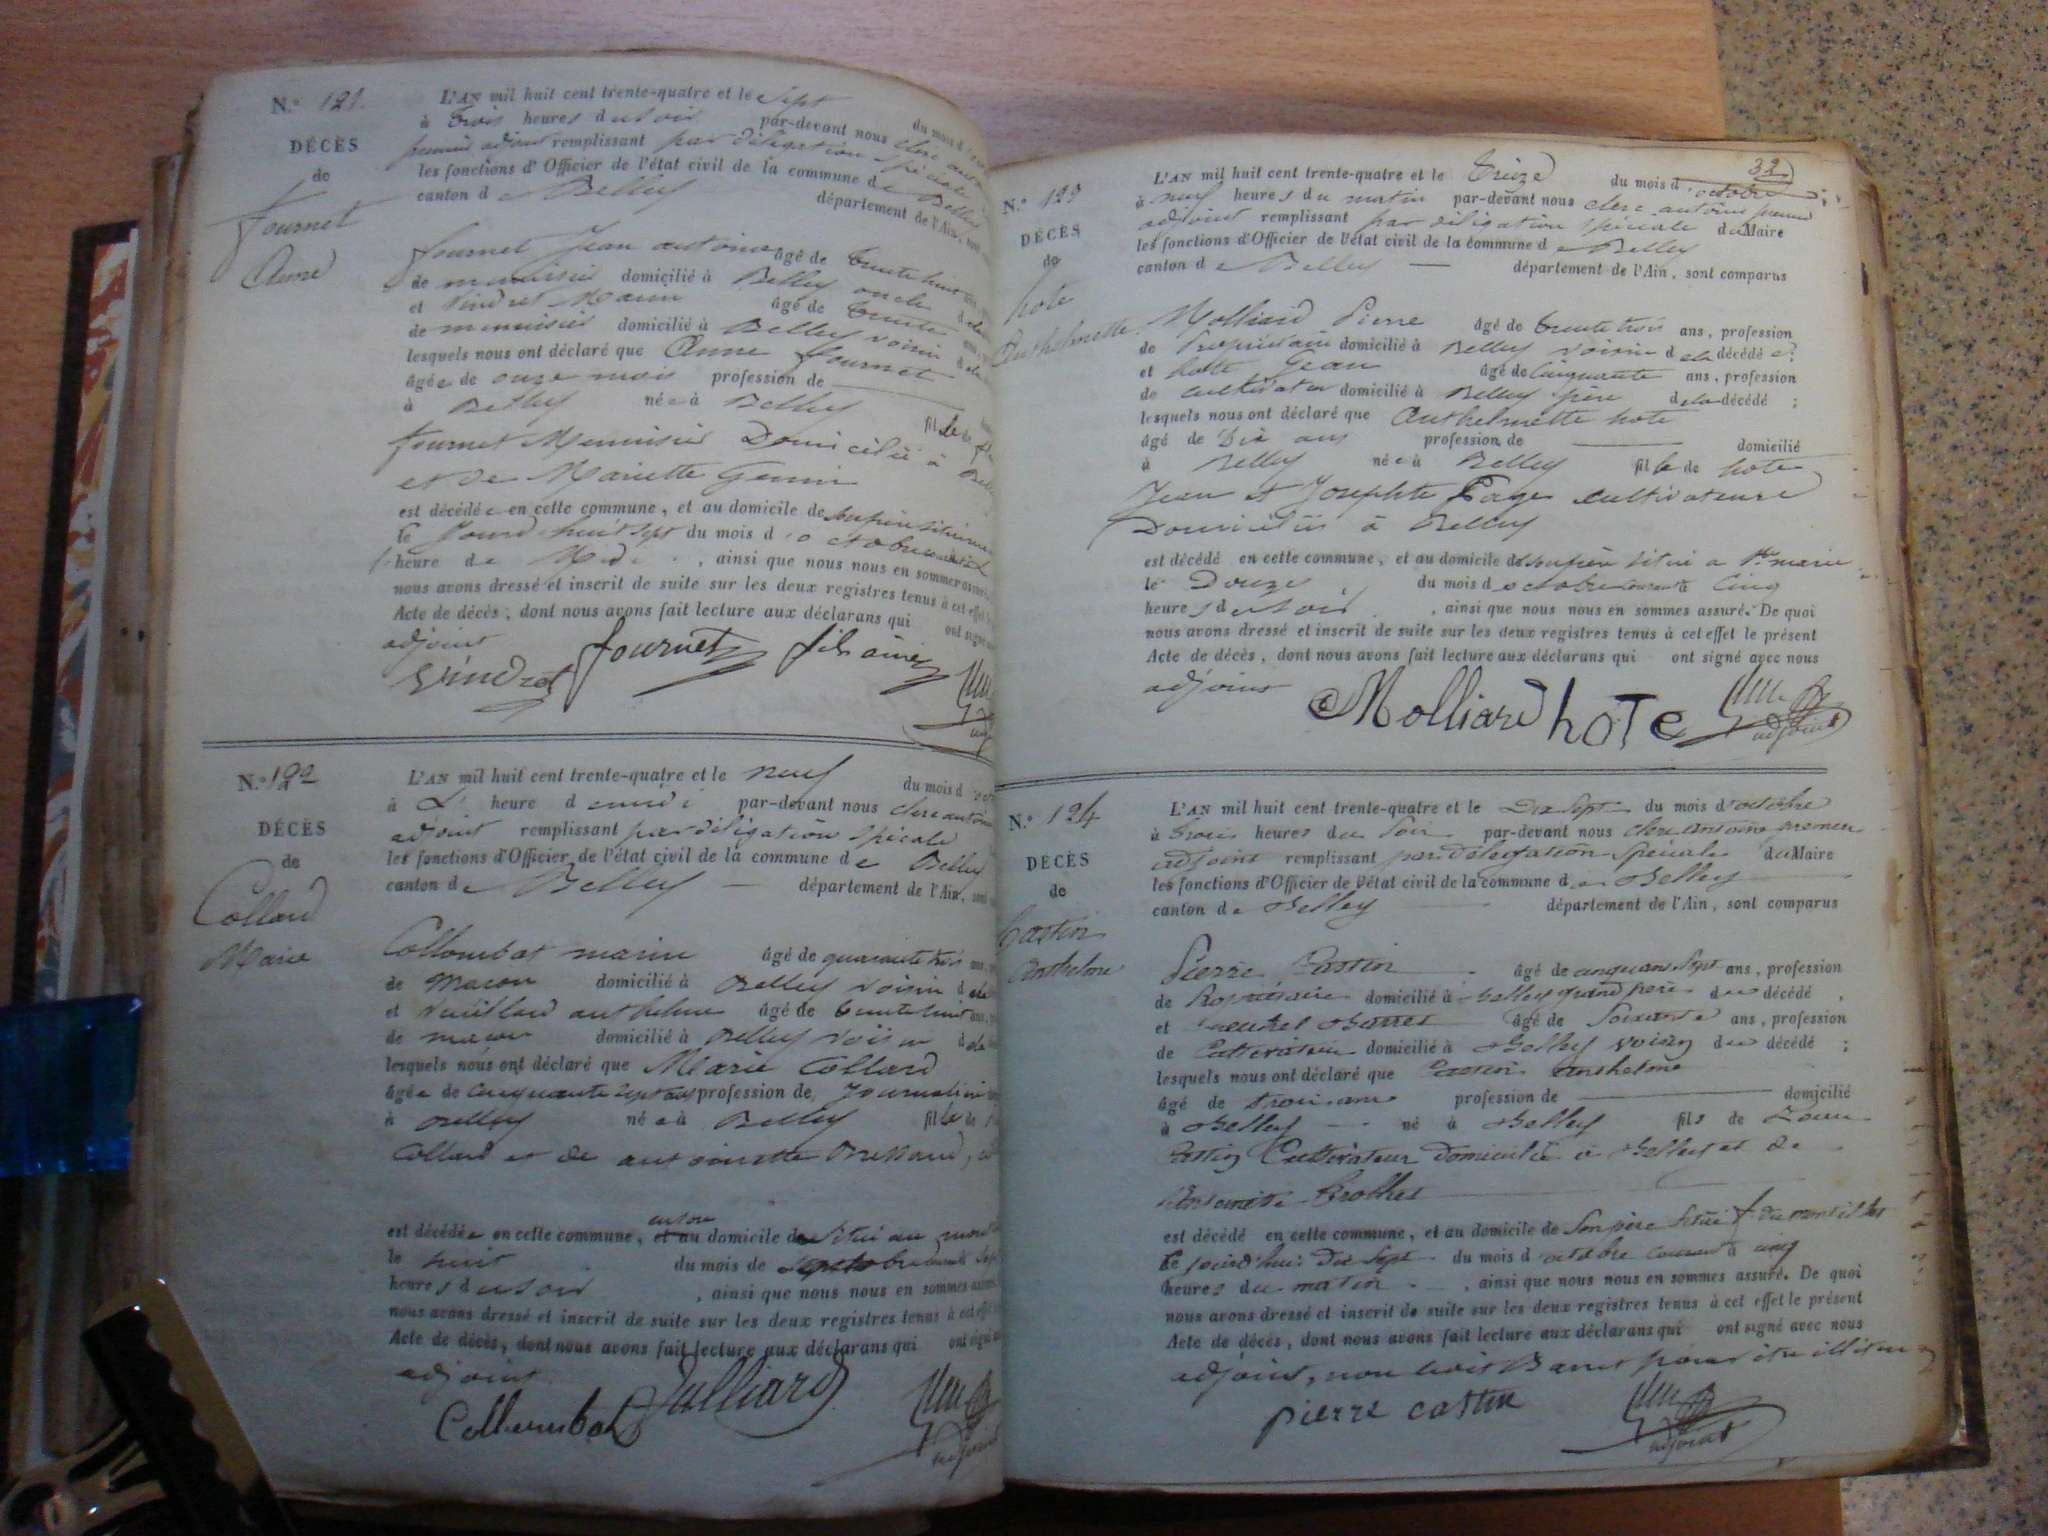 N.º 121.
DÉCÈS
de
fournet
Anne
L'AN mil huit cent trente-quatre et le sept du mois d
à trois heures du soir par-devant nous clerc
premier adjoint remplissant par délégation spéciale
les fonctions d'Officier de l'état civil de la commune de Belley
canton de Belley département de l'Ain,
fournet Jean antoine âgé de trente huit
de menuisier domicilié à Belley oncle
et Vindret âgé de trente
de menuisier domicilié à Belley voisin
lesquels nous ont déclaré que Anne fournet
âgée de onze mois profession de
à Belley née à Belley fille de
fournet Menuisier Domicilié à
et de Mariette
est décédée en cette commune, et au domicile de
le jourd'huit sept du mois d'octobre
heure de Midi, ainsi que nous nous en sommes
nous avons dressé et inscrit de suite sur les deux registres tenus à cet effet
Acte de décès, dont nous avons fait lecture aux déclarans qui ont signé
adjoint
Vindret fournet fils ainé
N.º 122
DÉCÈS
de
Collard
Marie
L'AN mil huit cent trente-quatre et le neuf du mois d
à heure de midi par-devant nous clerc antoine
adjoint remplissant par délégation spéciale
les fonctions d'Officier de l'état civil de la commune de Belley
canton de Belley département de l'Ain,
Collombat marin âgé de quarante trois
de maçon domicilié à Belley voisin de la
et anthelme âgé de trente huit ans
de maçon domicilié à Belley voisin de la
lesquels nous ont déclaré que Marie Collard
âgée de cinquante sept ans profession de Journalière
à Belley née à Belley fille de
Collard et de antoinette
est décédée en cette commune, et au domicile de
le huit du mois de
heures du soir, ainsi que nous nous en sommes
nous avons dressé et inscrit de suite sur les deux registres tenus à cet effet
Acte de décès, dont nous avons fait lecture aux déclarans qui ont signé
adjoint
Collombat
adjoint
32
N.º 123
DÉCÈS
de
hote
Anthelmette
L'AN mil huit cent trente-quatre et le treize du mois d'octobre
à neuf heures du matin par-devant nous clerc antoine premier
adjoint remplissant par délégation spéciale du Maire
les fonctions d'Officier de l'état civil de la commune de Belley
canton de Belley département de l'Ain, sont comparus
Molliard Pierre âgé de trente trois ans, profession
de Propriétaire domicilié à Belley voisin de la décédée;
et hotte Jean âgé de cinquante ans, profession
de cultivateur domicilié à Belley père de la décédé;
lesquels nous ont déclaré que Anthelmette hote
âgé de dix ans profession de domicilié
à Belley née à Belley fille de hote
Jean et Josephte Page cultivateurs
Domiciliés à Belley
est décédé en cette commune, et au domicile de son père situé a Ste marie
le Douze du mois d'octobre courant à Cinq
heures du soir, ainsi que nous nous en sommes assuré. De quoi
nous avons dressé et inscrit de suite sur les deux registres tenus à cet effet le présent
Acte de décès, dont nous avons fait lecture aux déclarans qui ont signé avec nous
adjoint
Molliard hoTe
adjoint
N.º 124
DÉCÈS
de
Castin
Anthelme
L'AN mil huit cent trente-quatre et le Dix Sept du mois d'octobre
à trois heures du soir par-devant nous clerc antoine premier
adjoint remplissant par délégation spéciale du Maire
les fonctions d'Officier de l'état civil de la commune de Belley
canton de Belley département de l'Ain, sont comparus
Pierre Castin âgé de cinquante sept ans, profession
de Propriétaire domicilié à Belley grand père du décédé,
et Barret âgé de Soixante ans, profession
de Cultivateur domicilié à Belley voisin du décédé;
lesquels nous ont déclaré que Castin anthelme
âgé de trois ans profession de domicilié
à Belley né à Belley fils de
Castin Cultivateur Domicilié à Belley et de
Antoinette
est décédé en cette commune, et au domicile de son père Situé
le jourd'hui Dix Sept du mois d'octobre courant à cinq
heures du matin, ainsi que nous nous en sommes assuré. De quoi
nous avons dressé et inscrit de suite sur les deux registres tenus à cet effet le présent
Acte de décès, dont nous avons fait lecture aux déclarans qui ont signé avec nous
adjoint, non Barret pour être
pierre castin
adjoint